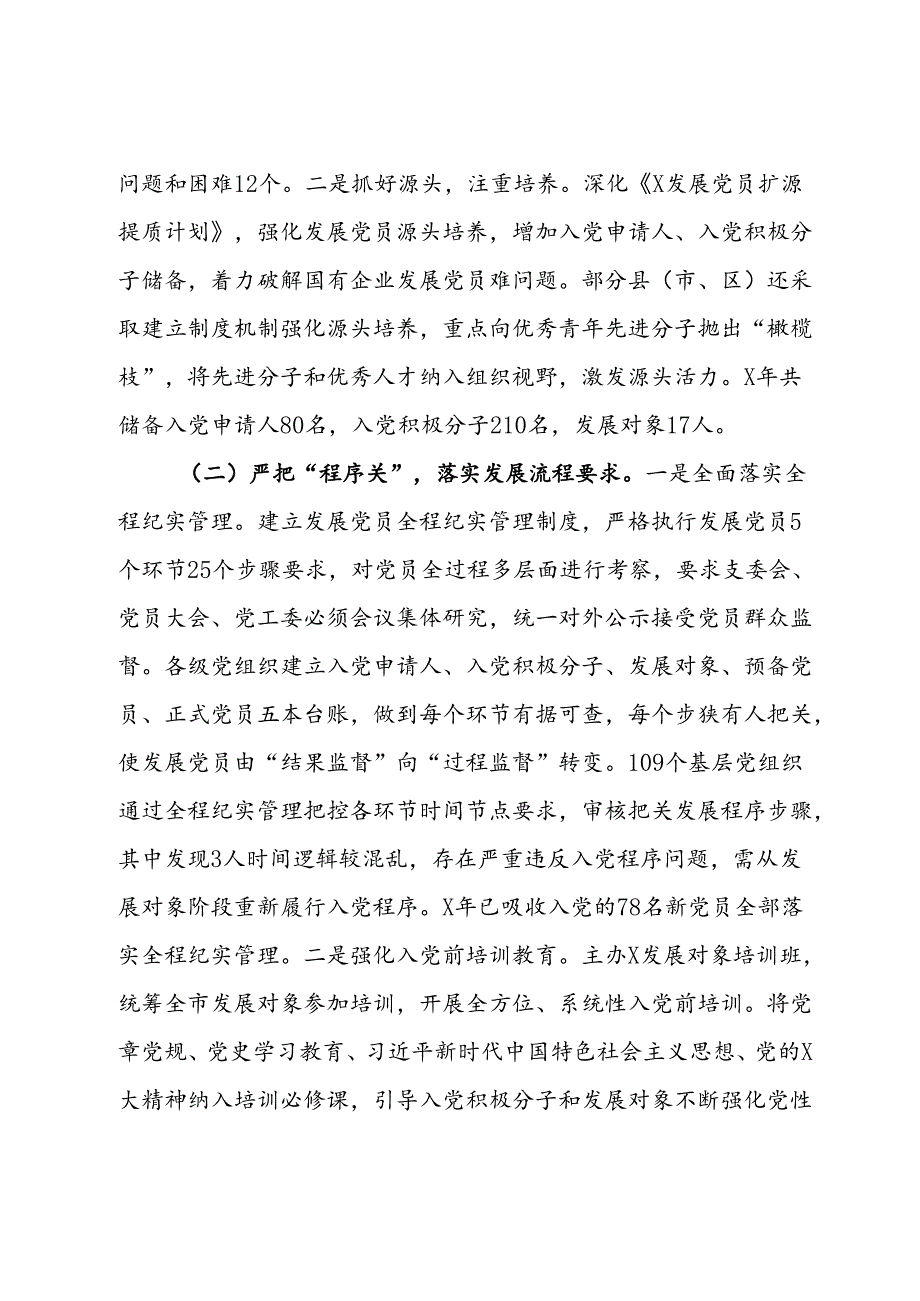 问题和困难12个。二是抓好源头，注重培养。深化《X发展党员扩源
提质计划》，强化发展党员源头培养，增加入党申请人、入党积极分
子储备，着力破解国有企业发展党员难问题。部分县（市、区）还采
取建立制度机制强化源头培养，重点向优秀青年先进分子抛出“橄榄
枝”，将先进分子和优秀人才纳入组织视野，激发源头活力。X年共
储备入党申请人80名，入党积极分子210名，发展对象17人。
（二）严把“程序关”，落实发展流程要求。一是全面落实全
程纪实管理。建立发展党员全程纪实管理制度，严格执行发展党员5
个环节25个步骤要求，对党员全过程多层面进行考察，要求支委会、
党员大会、党工委必须会议集体研究，统一对外公示接受党员群众监
督。各级党组织建立入党申请人、入党积极分子、发展对象、预备党
员、正式党员五本台账，做到每个环节有据可查，每个步狭有人把关，
使发展党员由“结果监督”向“过程监督”转变。109个基层党组织
通过全程纪实管理把控各环节时间节点要求，审核把关发展程序步骤，
其中发现3人时间逻辑较混乱，存在严重违反入党程序问题，需从发
展对象阶段重新履行入党程序。X年已吸收入党的78名新党员全部落
实全程纪实管理。二是强化入党前培训教育。主办X发展对象培训班，
统筹全市发展对象参加培训，开展全方位、系统性入党前培训。将党
章党规、党史学习教育、习近平新时代中国特色社会主义思想、党的X
大精神纳入培训必修课，引导入党积极分子和发展对象不断强化党性